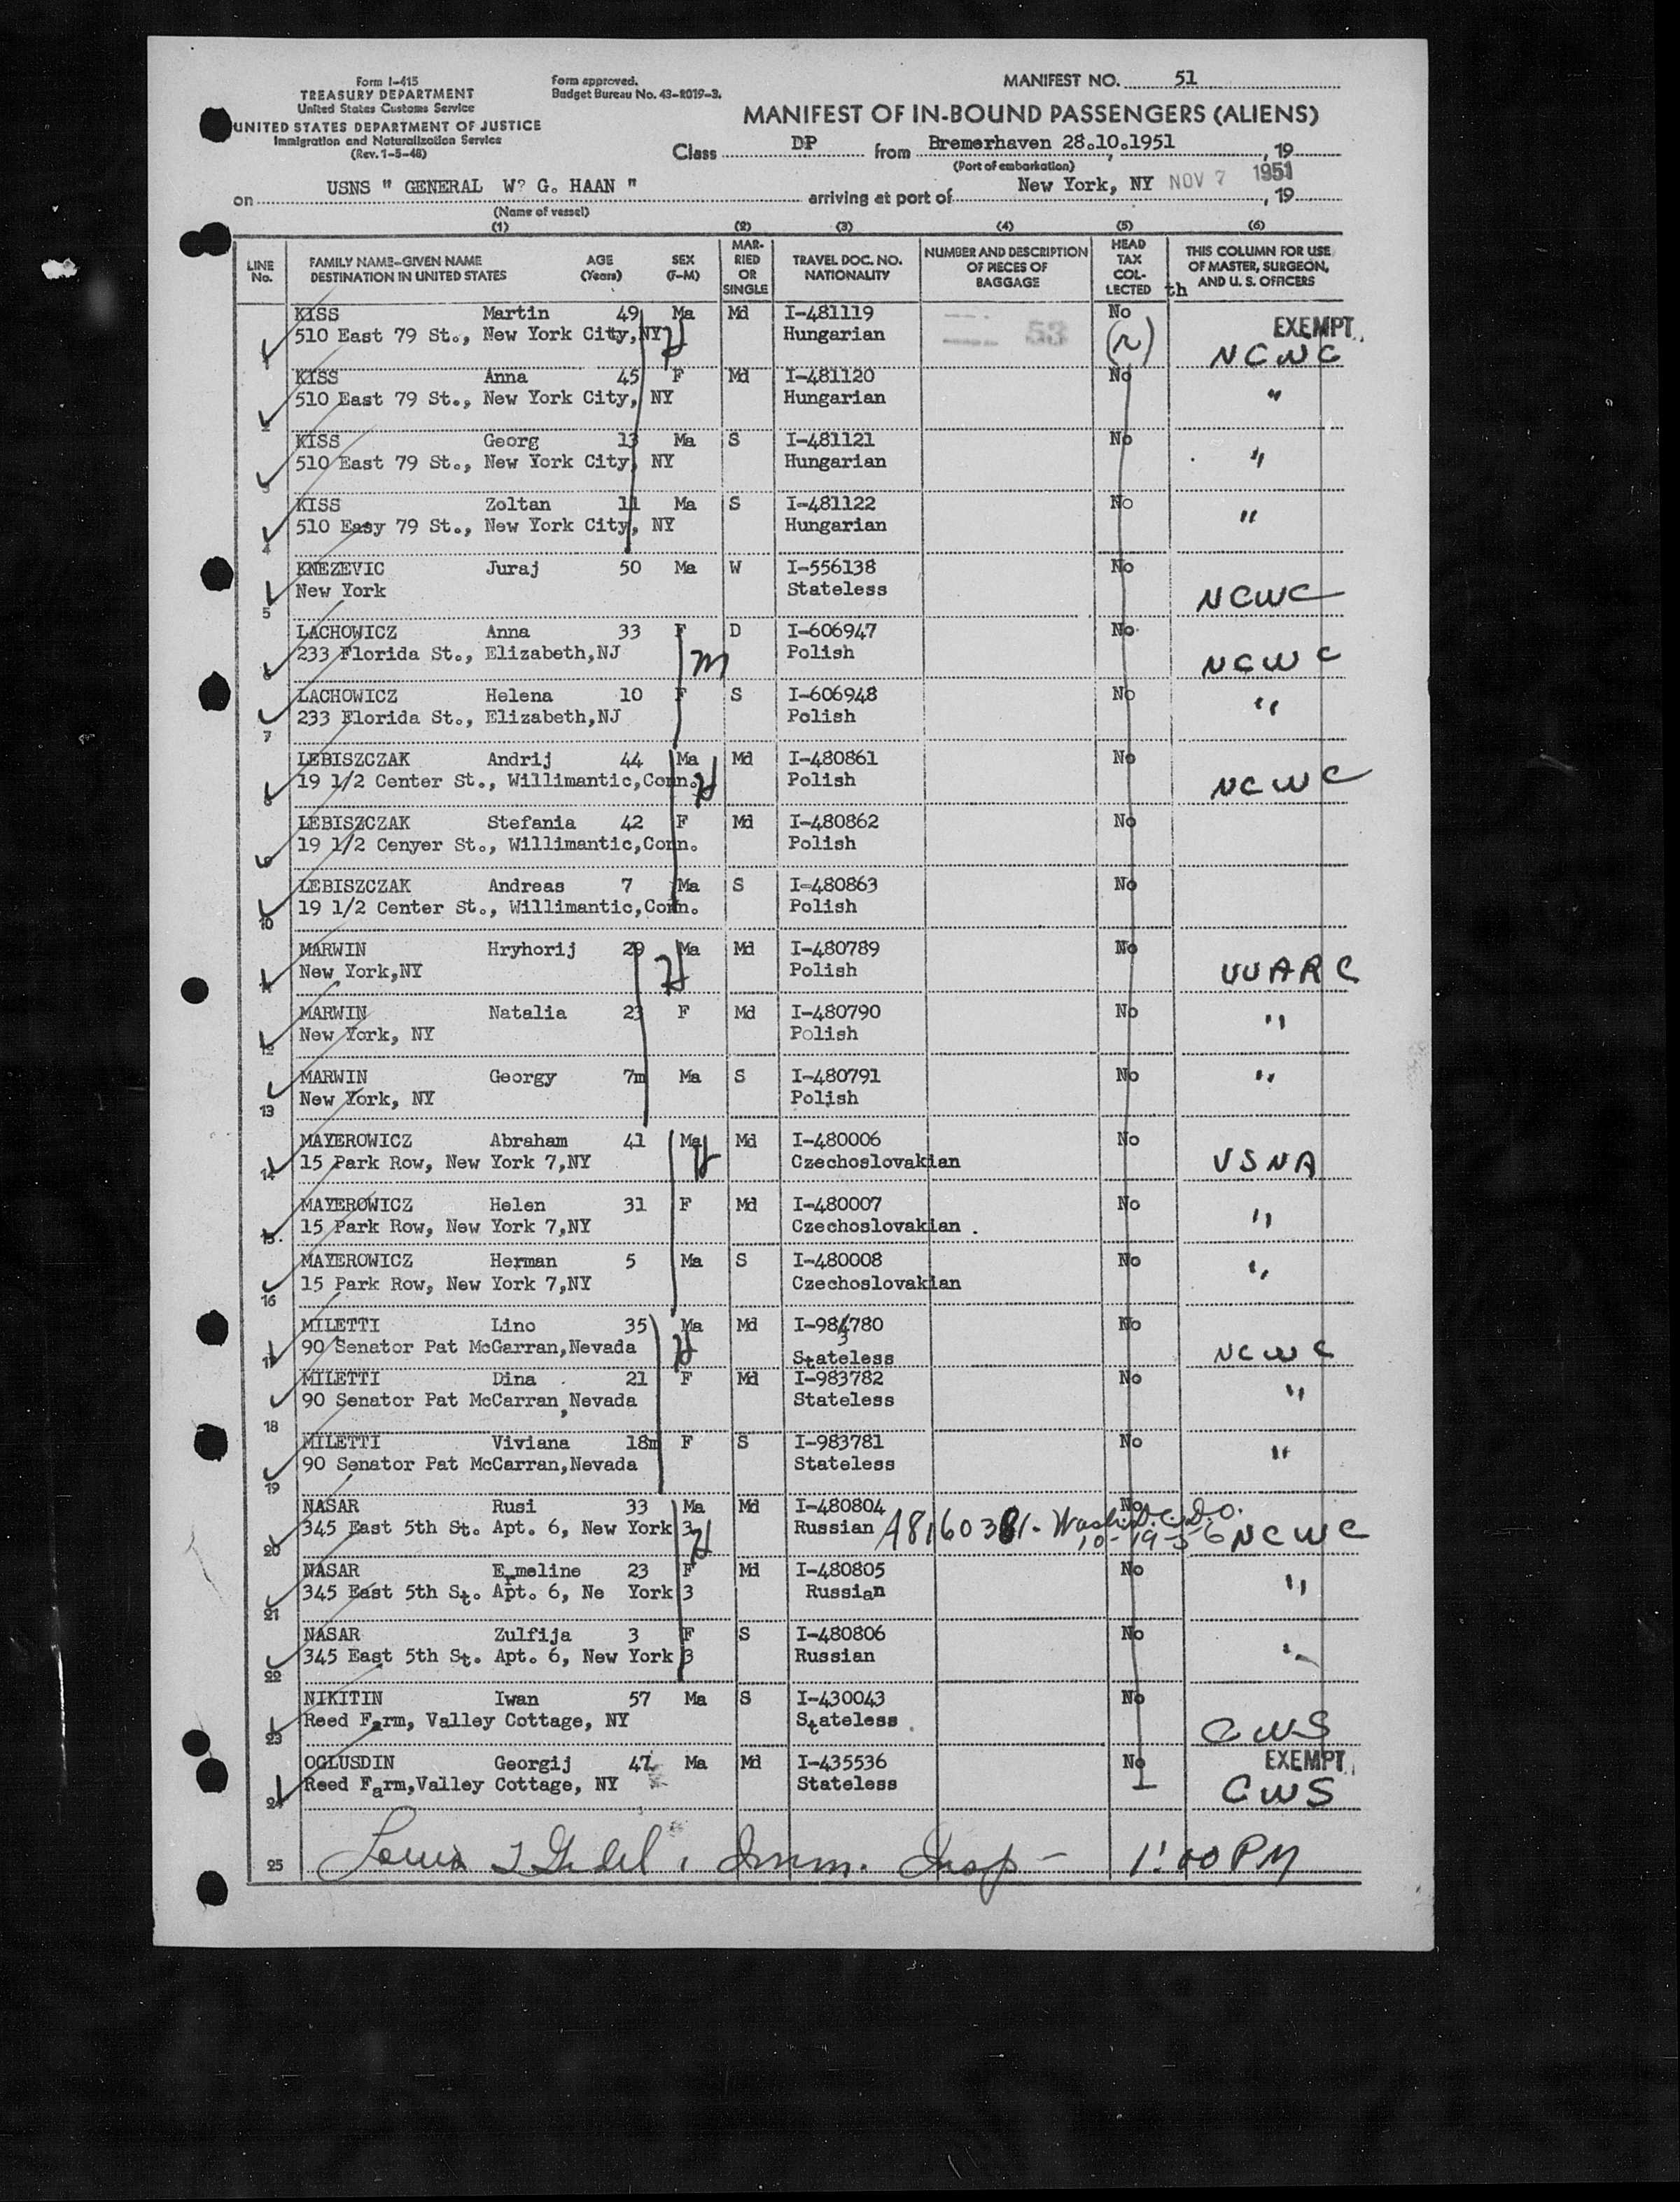 Form I-415
TREASURY DEPARTMENT
United States Customs Service
UNITED STATES DEPARTMENT OF JUSTICE
Immigration and Naturalization Service
(Rev. 1-5-48)
Form approved.
Budget Bureau No. 43-R019-3.
MANIFEST NO. 51
MANIFEST OF IN-BOUND PASSENGERS (ALIENS)
Class DP from Bremerhaven 28.10.1951, 19
(Port of embarkation)
on USNS " GENERAL W? G. HAAN " arriving at port of New York, NY NOV 7 1951, 19
(Name of vessel)
(1) (2) (3) (4) (5) (6)
LINE No. FAMILY NAME-GIVEN NAME DESTINATION IN UNITED STATES AGE (Years) SEX (F-M) MARRIED OR SINGLE TRAVEL DOC. NO. NATIONALITY NUMBER AND DESCRIPTION OF PIECES OF BAGGAGE HEAD TAX COLLECTED THIS COLUMN FOR USE OF MASTER, SURGEON, AND U. S. OFFICERS
th
KISS Martin 49 Ma Md I-481119 No EXEMPT
510 East 79 St., New York City, NY Hungarian 53 (N) NCWC
KISS Anna 45 F Md I-481120 No
2 510 East 79 St., New York City, NY Hungarian "
KISS Georg 13 Ma S I-481121 No
3 510 East 79 St., New York City, NY Hungarian "
KISS Zoltan 11 Ma S I-481122 No
4 510 Easy 79 St., New York City, NY Hungarian "
KNEZEVIC Juraj 50 Ma W I-556138 No
5 New York Stateless NCWC
LACHOWICZ Anna 33 F D I-606947 No
6 233 Florida St., Elizabeth,NJ m Polish NCWC
LACHOWICZ Helena 10 F S I-606948 No
7 233 Florida St., Elizabeth,NJ Polish "
LEBISZCZAK Andrij 44 Ma Md I-480861 No
8 19 1/2 Center St., Willimantic,Conn. Polish NCWC
LEBISZCZAK Stefania 42 F Md I-480862 No
19 1/2 Cenyer St., Willimantic,Conn. Polish
LEBISZCZAK Andreas 7 Ma S I-480863 No
10 19 1/2 Center St., Willimantic,Conn. Polish
MARWIN Hryhorij 29 Ma Md I-480789 No
New York,NY Polish UUARC
MARWIN Natalia 23 F Md I-480790 No
12 New York, NY Polish "
MARWIN Georgy 7m Ma S I-480791 No
13 New York, NY Polish "
MAYEROWICZ Abraham 41 Ma Md I-480006 No
14 15 Park Row, New York 7,NY Czechoslovakian USNA
MAYEROWICZ Helen 31 F Md I-480007 No
15. 15 Park Row, New York 7,NY Czechoslovakian . "
MAYEROWICZ Herman 5 Ma S I-480008 No
16 15 Park Row, New York 7,NY Czechoslovakian "
MILETTI Lino 35 Ma Md I-984780 No
3
17 90 Senator Pat McGarran,Nevada Stateless NCWC
MILETTI Dina 21 F Md I-983782 No
18 90 Senator Pat McCarran,Nevada Stateless "
MILETTI Viviana 18m F S I-983781 No
19 90 Senator Pat McCarran,Nevada Stateless "
NASAR Rusi 33 Ma Md I-480804 No
20 345 East 5th St. Apt. 6, New York 3 Russian A8160381 - Wash. D.C. D.O. 10-19-56 NCWC
NASAR Ermeline 23 F Md I-480805 No
21 345 East 5th St. Apt. 6, Ne York 3 Russian "
NASAR Zulfija 3 F S I-480806 No
22 345 East 5th St. Apt. 6, New York 3 Russian "
NIKITIN Iwan 57 Ma S I-430043 No
23 Reed Farm, Valley Cottage, NY Stateless CWS
OGLUSDIN Georgij 47 Ma Md I-435536 No EXEMPT
24 Reed Farm,Valley Cottage, NY Stateless CWS
25 Louis Imm. Insp - 1:00 PM